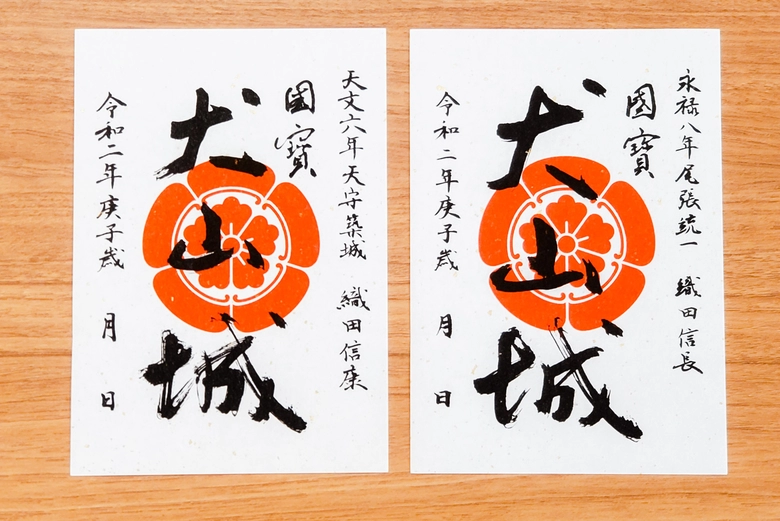 天文六年天守築城 織田信康
國寳
犬山城
令和二年庚子歳 月 日
永禄八年尾張統一 織田信長
國寳
犬山城
令和二年庚子歳 月 日